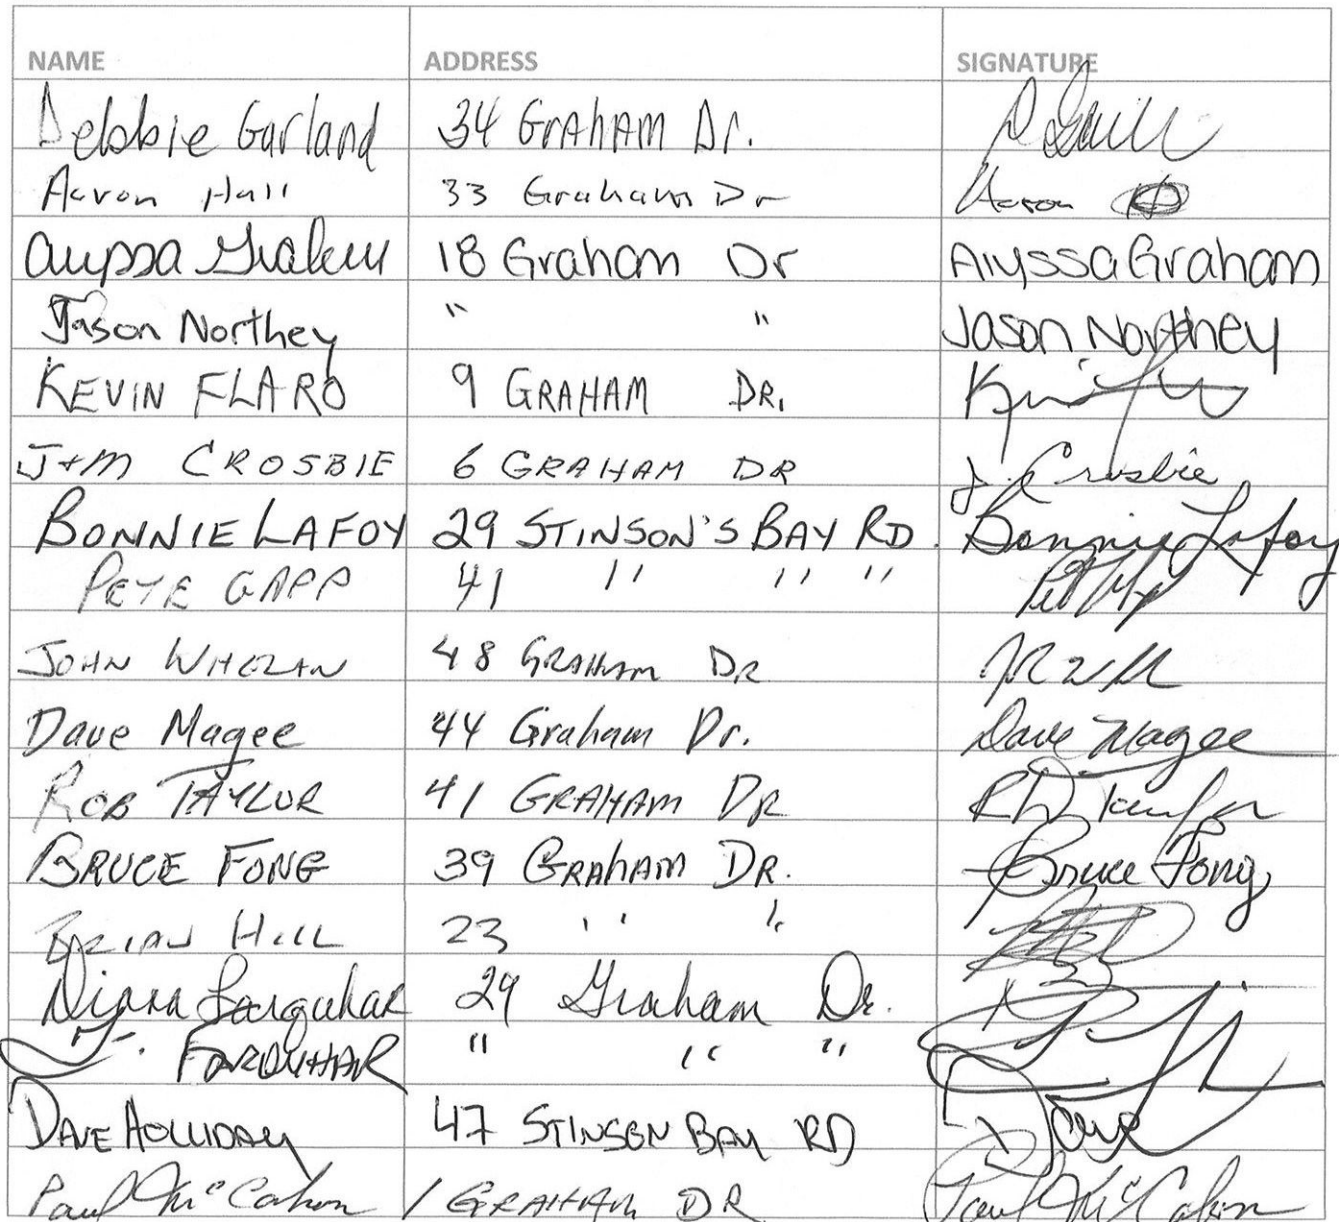 NAME ADDRESS SIGNATURE
Debbie Garland 34 Graham Dr.
Aaron Hall 33 Graham Dr Aaron
Alyssa Graham 18 Graham Dr Alyssa Graham
Jason Northey " " Jason Northey
KEVIN FLARO 9 GRAHAM DR.
J+M CROSBIE 6 GRAHAM DR J. Crosbie
BONNIE LAFOY 29 STINSON'S BAY RD. Bonnie Lafoy
PETE GAPP 41 " " "
JOHN WHELAN 48 GRAHAM DR
Dave Magee 44 Graham Dr. Dave Magee
ROB TAYLOR 41 GRAHAM DR RD Taylor
BRUCE FONG 39 GRAHAM DR. Bruce Fong
BRIAN HILL 23 " "
Diana Farquhar 29 Graham Dr.
J. FARQUHAR " " "
DAVE HOLLIDAY 47 STINSON BAY RD Dave
Paul McCahon 1 GRAHAM DR Paul McCahon